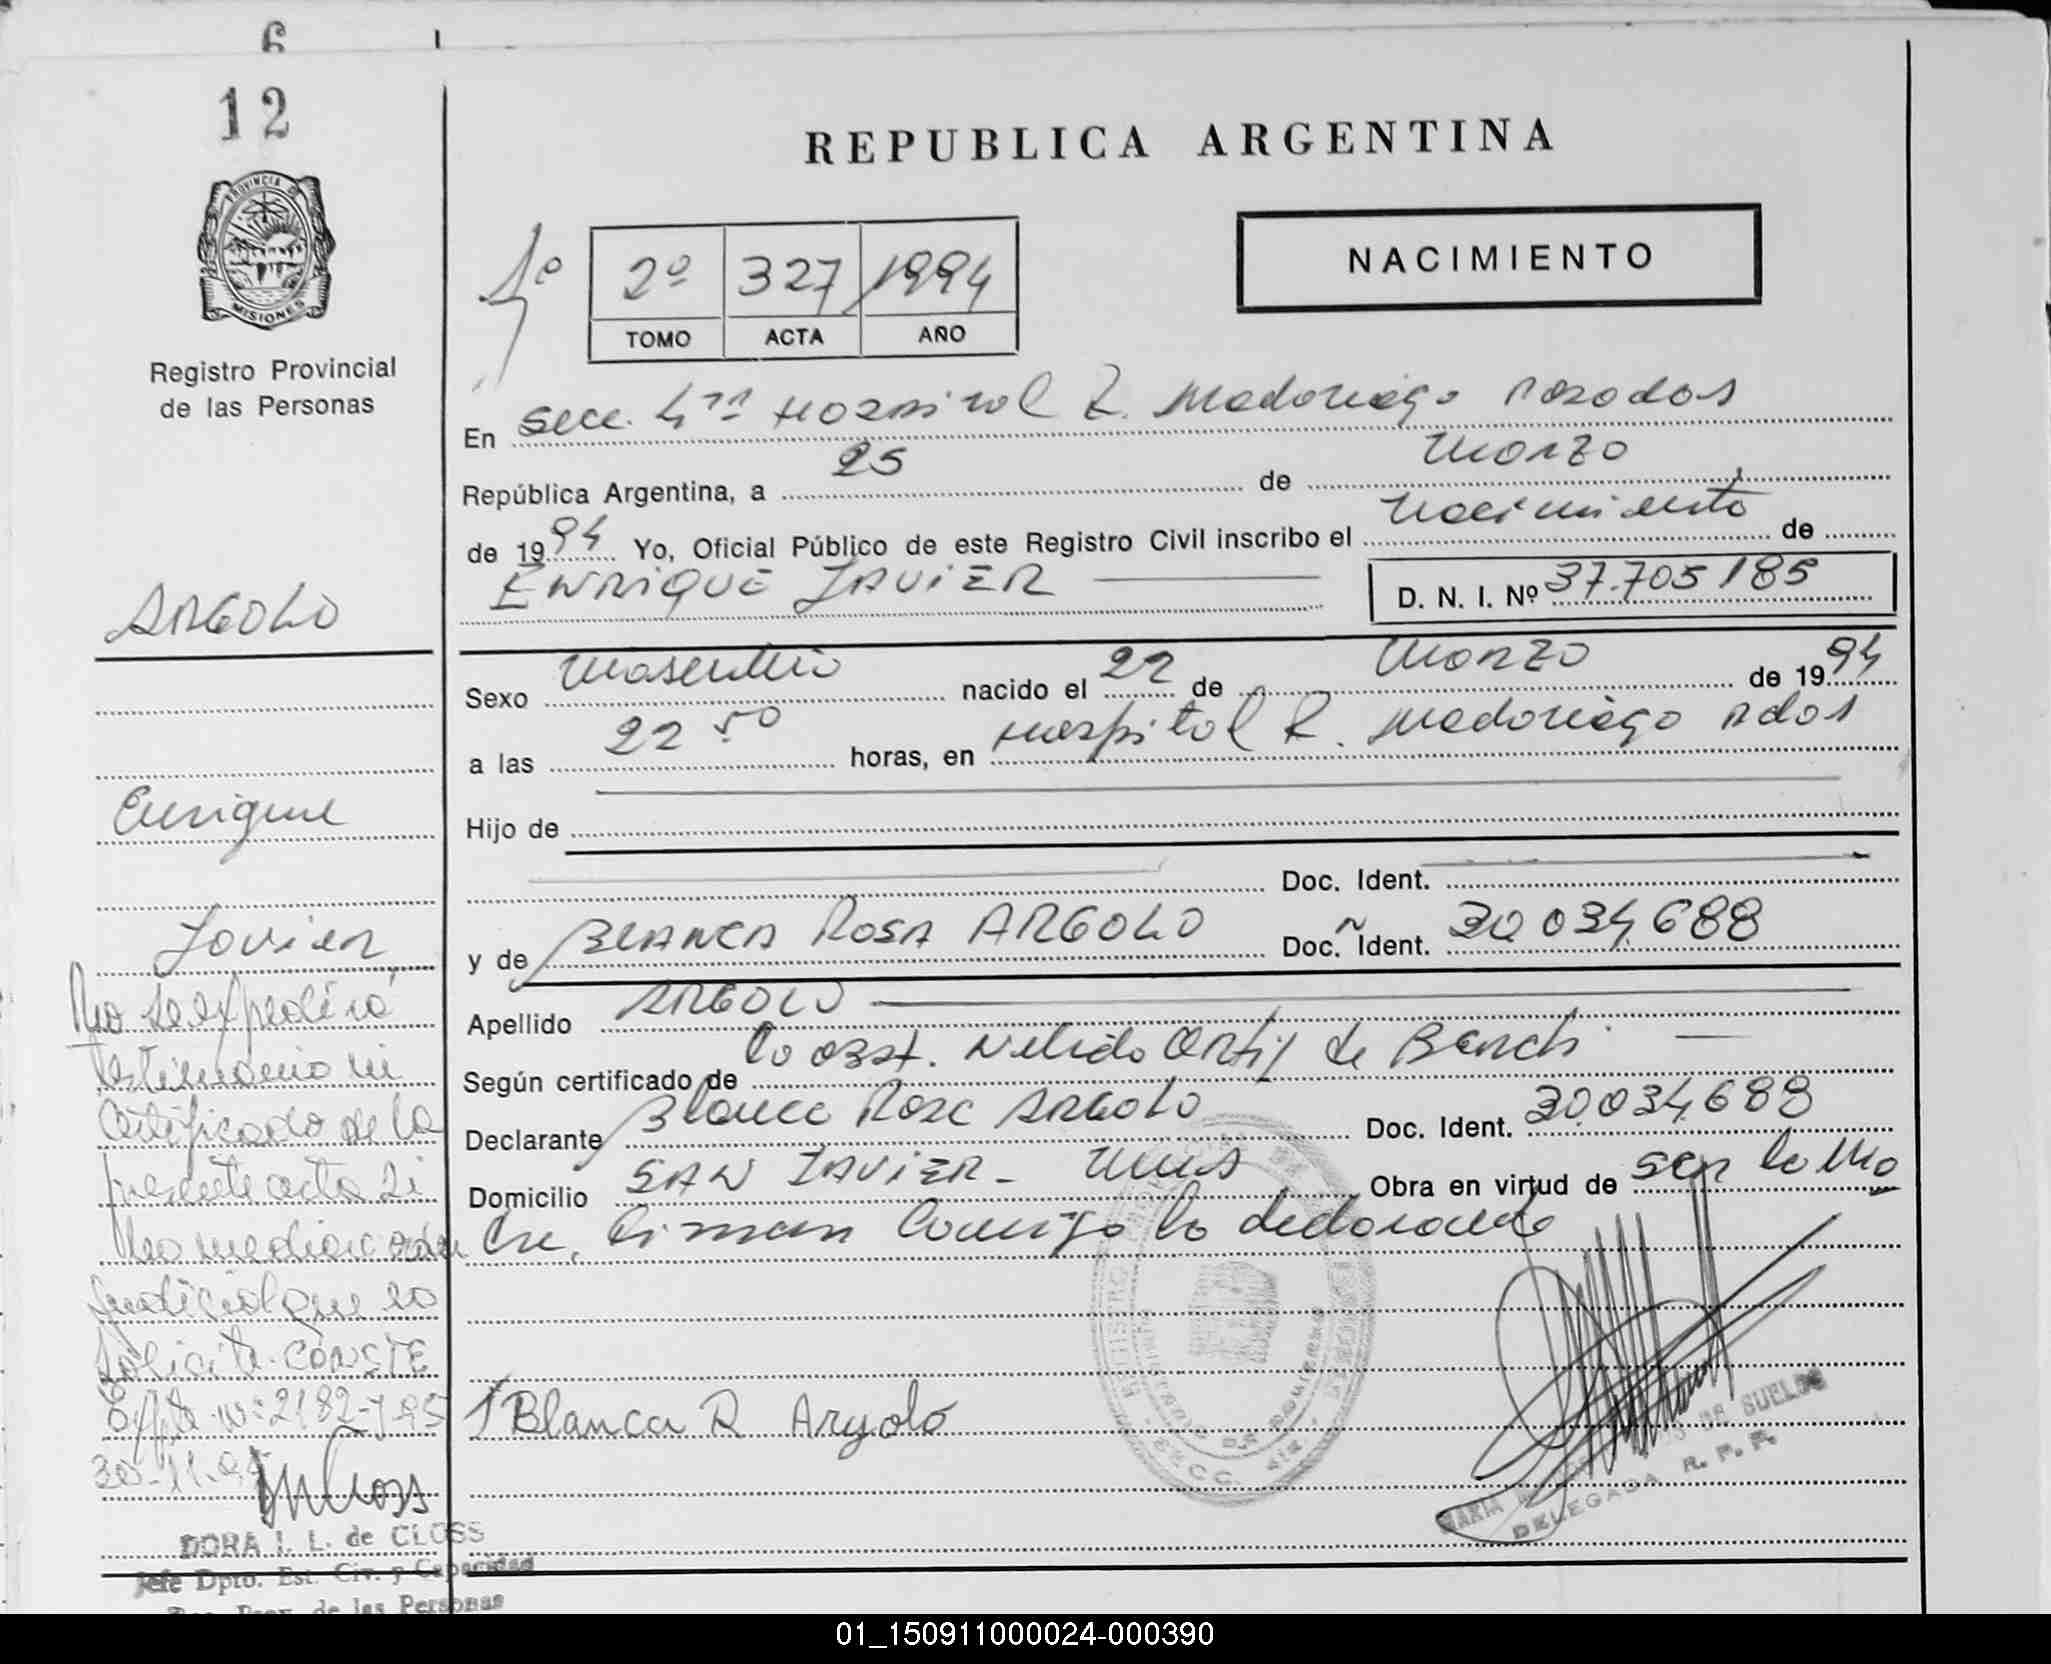 6
12
PROVINCIA DE
MISIONES
Registro Provincial
de las Personas
ARGOLO
Enrique
Javier
No se expedirá
testimonio ni
certificado de la
presente acta si
no media orden
judicial que lo
solicite. CONSTE
Expte. nº: 2182-J-95
30-11-95
DORA I. L. de CLOSS
Jefe Dpto. Est. Civ. y Capacidad
Reg. Prov. de las Personas
REPUBLICA ARGENTINA
1º
2º 327 1994
TOMO ACTA AÑO
NACIMIENTO
En Secc. 4ta Hospital R. Madariaga Posadas
República Argentina, a 25 de Marzo
de 1994 Yo, Oficial Público de este Registro Civil inscribo el nacimiento de
ENRIQUE JAVIER
D. N. I. Nº 37.705.185
Sexo Masculino nacido el 22 de Marzo de 1994
a las 22 50 horas, en Hospital R. Madariaga Pdas
Hijo de
Doc. Ident.
y de BLANCA ROSA ARGOLO Doc. Ident. 30.034.688
Apellido ARGOLO
Según certificado de la Obst. Nelida Ortiz de
Declarante Blanca Rosa ARGOLO Doc. Ident. 30.034.688
Domicilio SAN JAVIER - Mnes Obra en virtud de ser la Ma
dre. Firman conmigo la declarante
Blanca R Argolo
MARIA DE SUELDO
DELEGADA R. P. P.
01_150911000024-000390